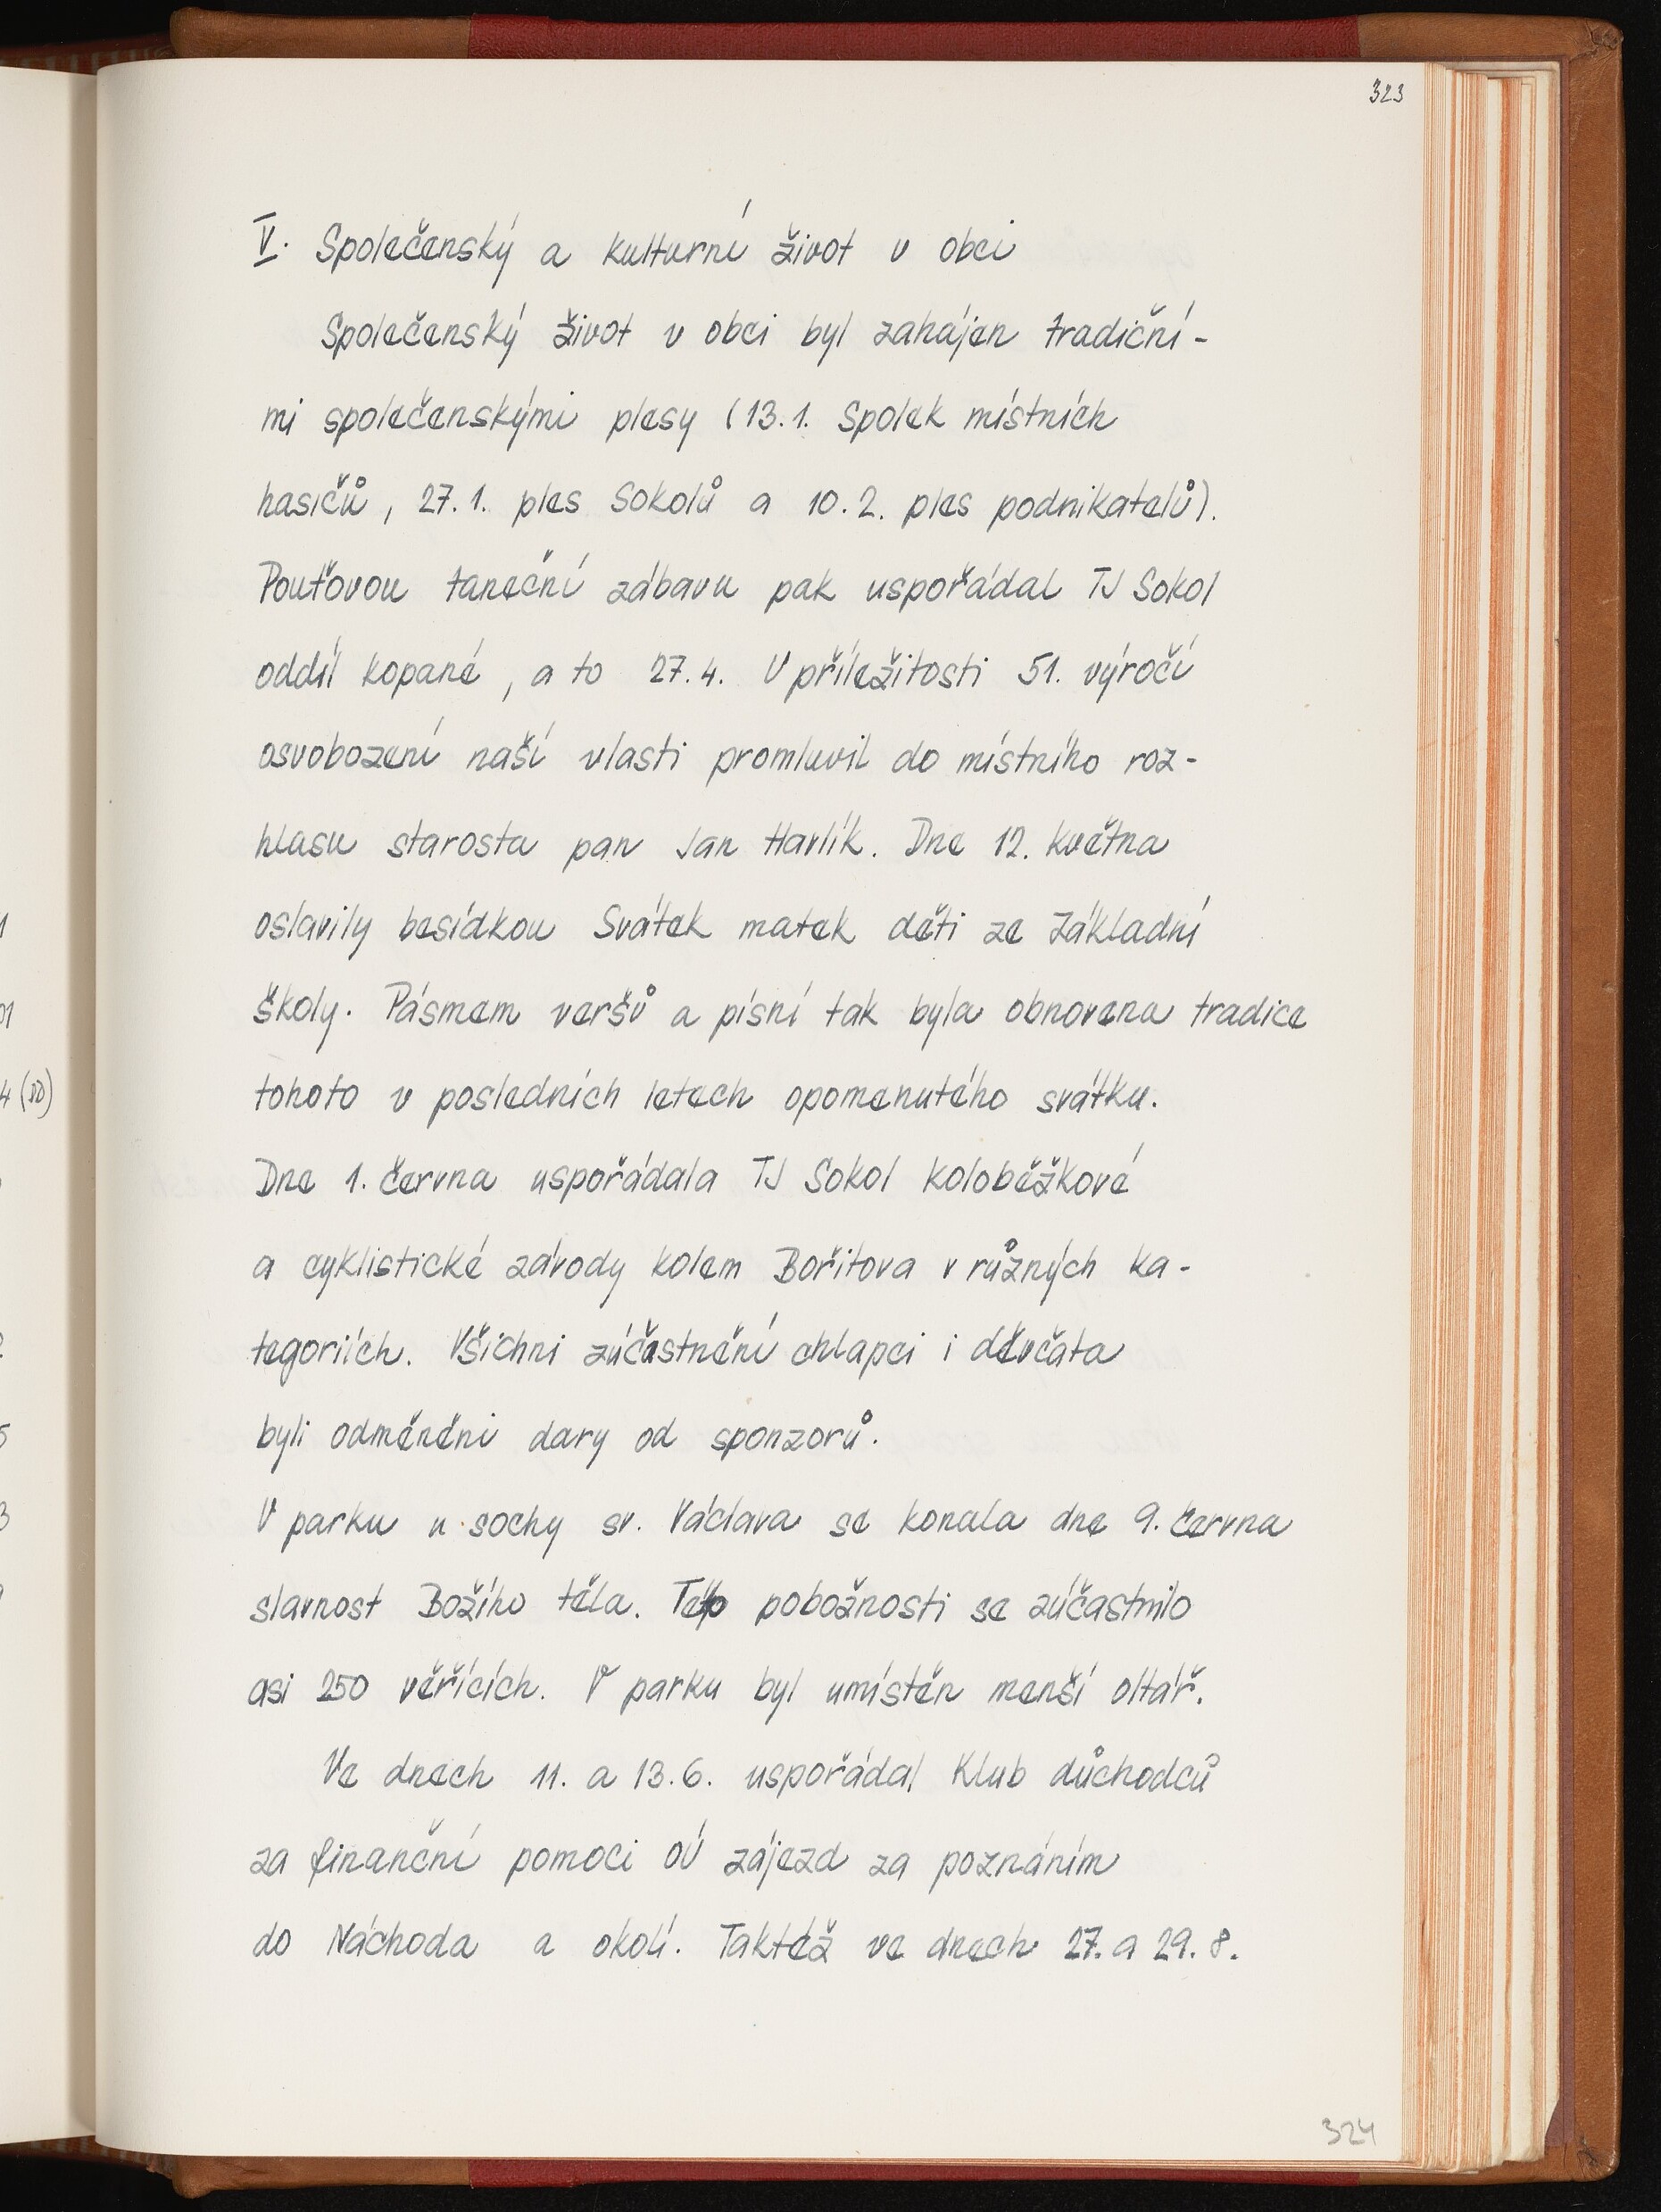 323
V. Společenský a kulturní život v obci
Společenský život v obci byl zahájen tradiční-
mi společenskými plesy (13.1. Spolek místních
hasičů, 27.1. ples Sokolů a 10.2. ples podnikatelů).
Pouťovou taneční zábavu pak uspořádal TJ Sokol
oddíl kopané, a to 27.4. U příležitosti 51. výročí
osvobození naší vlasti promluvil do místního roz-
hlasu starosta pan Jan Havlík. Dne 12. května
oslavily besídkou Svátek matek děti ze Základní
školy. Pásmem veršů a písní tak byla obnovena tradice
tohoto v posledních letech opomenutého svátku.
Dne 1. června uspořádala TJ Sokol koloběžkové
a cyklistické závody kolem Bořitova v různých ka-
tegoriích. Všichni zúčastnění chlapci i děvčata
byli odměněni dary od sponzorů.
V parku u sochy sv. Václava se konala dne 9. června
slavnost Božího těla. Této pobožnosti se zúčastnilo
asi 250 věřících. V parku byl umístěn menší oltář.
Ve dnech 11. a 13.6. uspořádal Klub důchodců
za finanční pomoci OÚ zájezd za poznáním
do Náchoda a okolí. Taktéž ve dnech 27. a 29. 8.
324